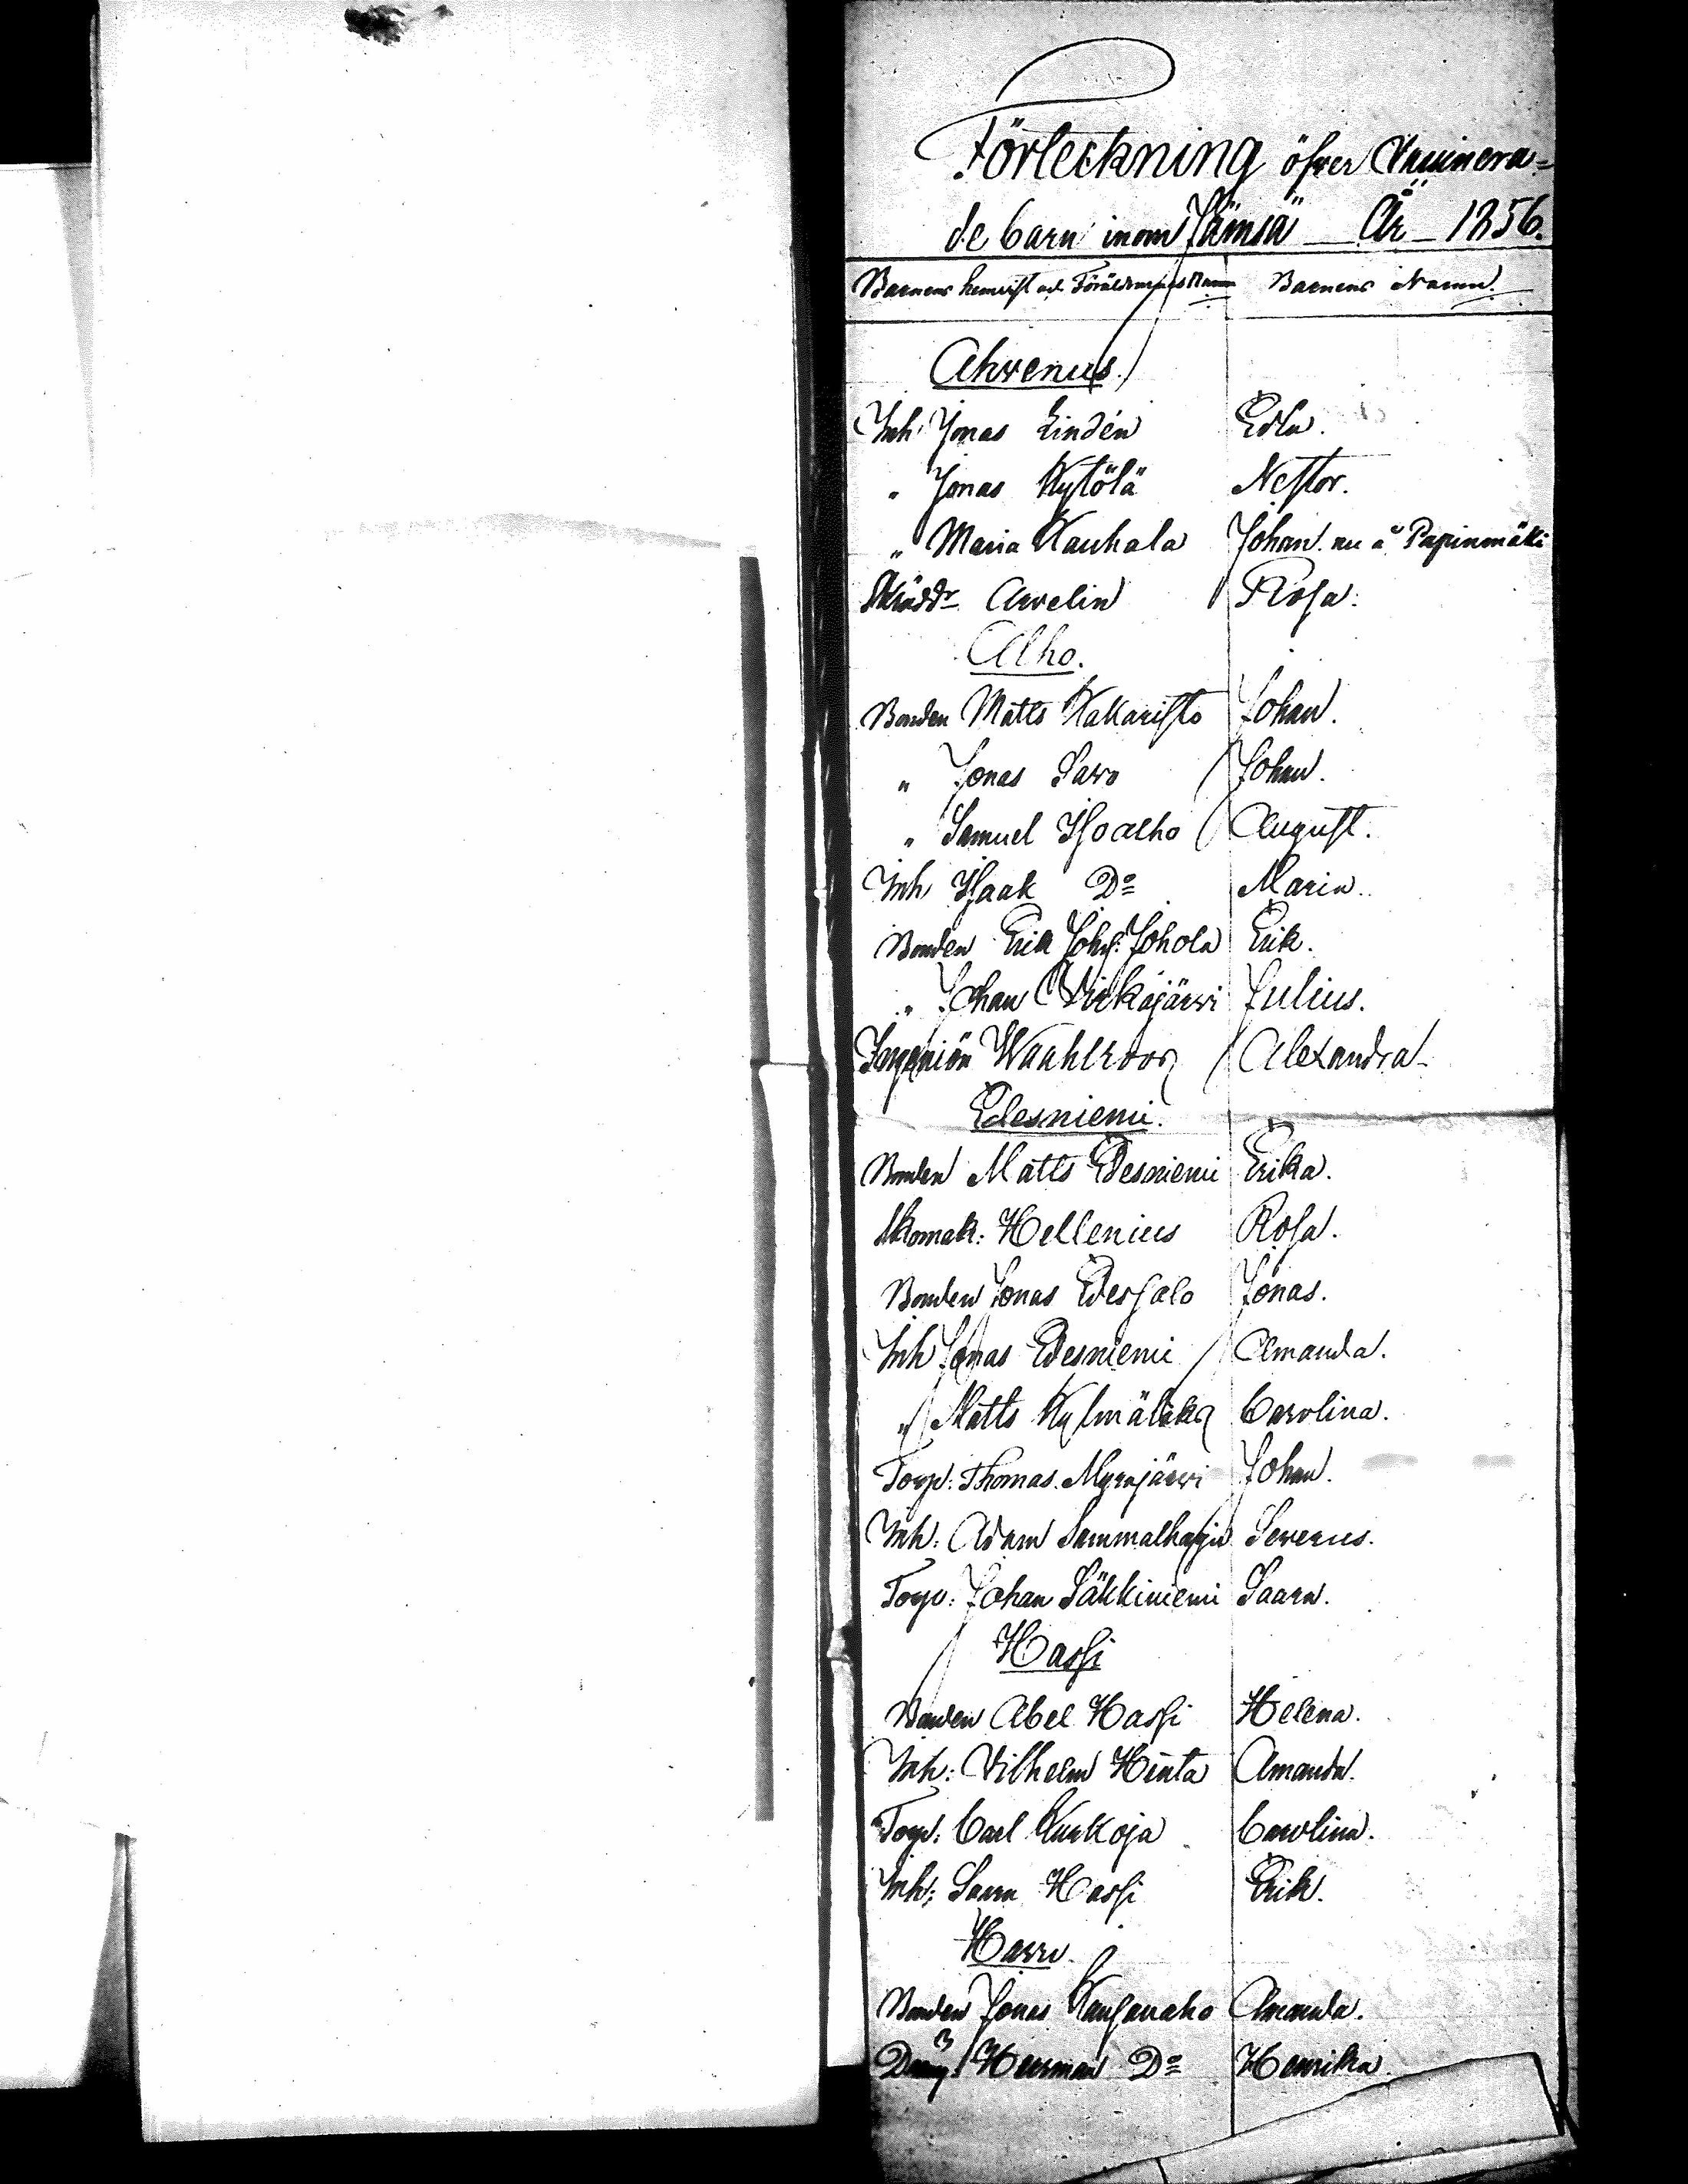 Förteckning öfver Vaccinera=
de barn inom Jämsä År 1856.
Barnens hemvist och Föräldrarnas Namn Barnens Namn.
Ahvenus.
Inh Jonas Lindén Edla.
" Jonas Kytölä Nestor.
" Maria Kauhala Johan. nu å Papinmäki
Skrädd:r Arvelin Rosa.
Alho.
Bonden Matts Kakaristo Johan.
" Jonas Savo Johan.
" Samuel Isoalho August.
Inh Isaak D:o Maria.
Bonden Erik Johs: Johola Erik.
" Johan Virkajärvi Julius.
Ingeniör Waahlroos Alexandra
Edesniemi.
Bonden Matts Edesniemi Erika.
Skomak: Hellenius Rosa.
Bonden Jonas Edessalo Jonas.
Inh Jonas Edesniemi Amanda.
" Matts Kylmälaks Carolina.
Torp: Thomas Myräjärvi Johan.
Inh: Adam Sammalharju Severus.
Torp: Johan Säkkiniemi Saara.
Hassi
Bonden Abel Hassi Helena.
Inh: Vilhelm Hinta Amanda.
Torp: Carl Kurkoja Carolina.
Inh: Saara Hassi Erik.
Harju.
Bonden Jonas Kansanaho Amanda.
Herman D:o Henrika.